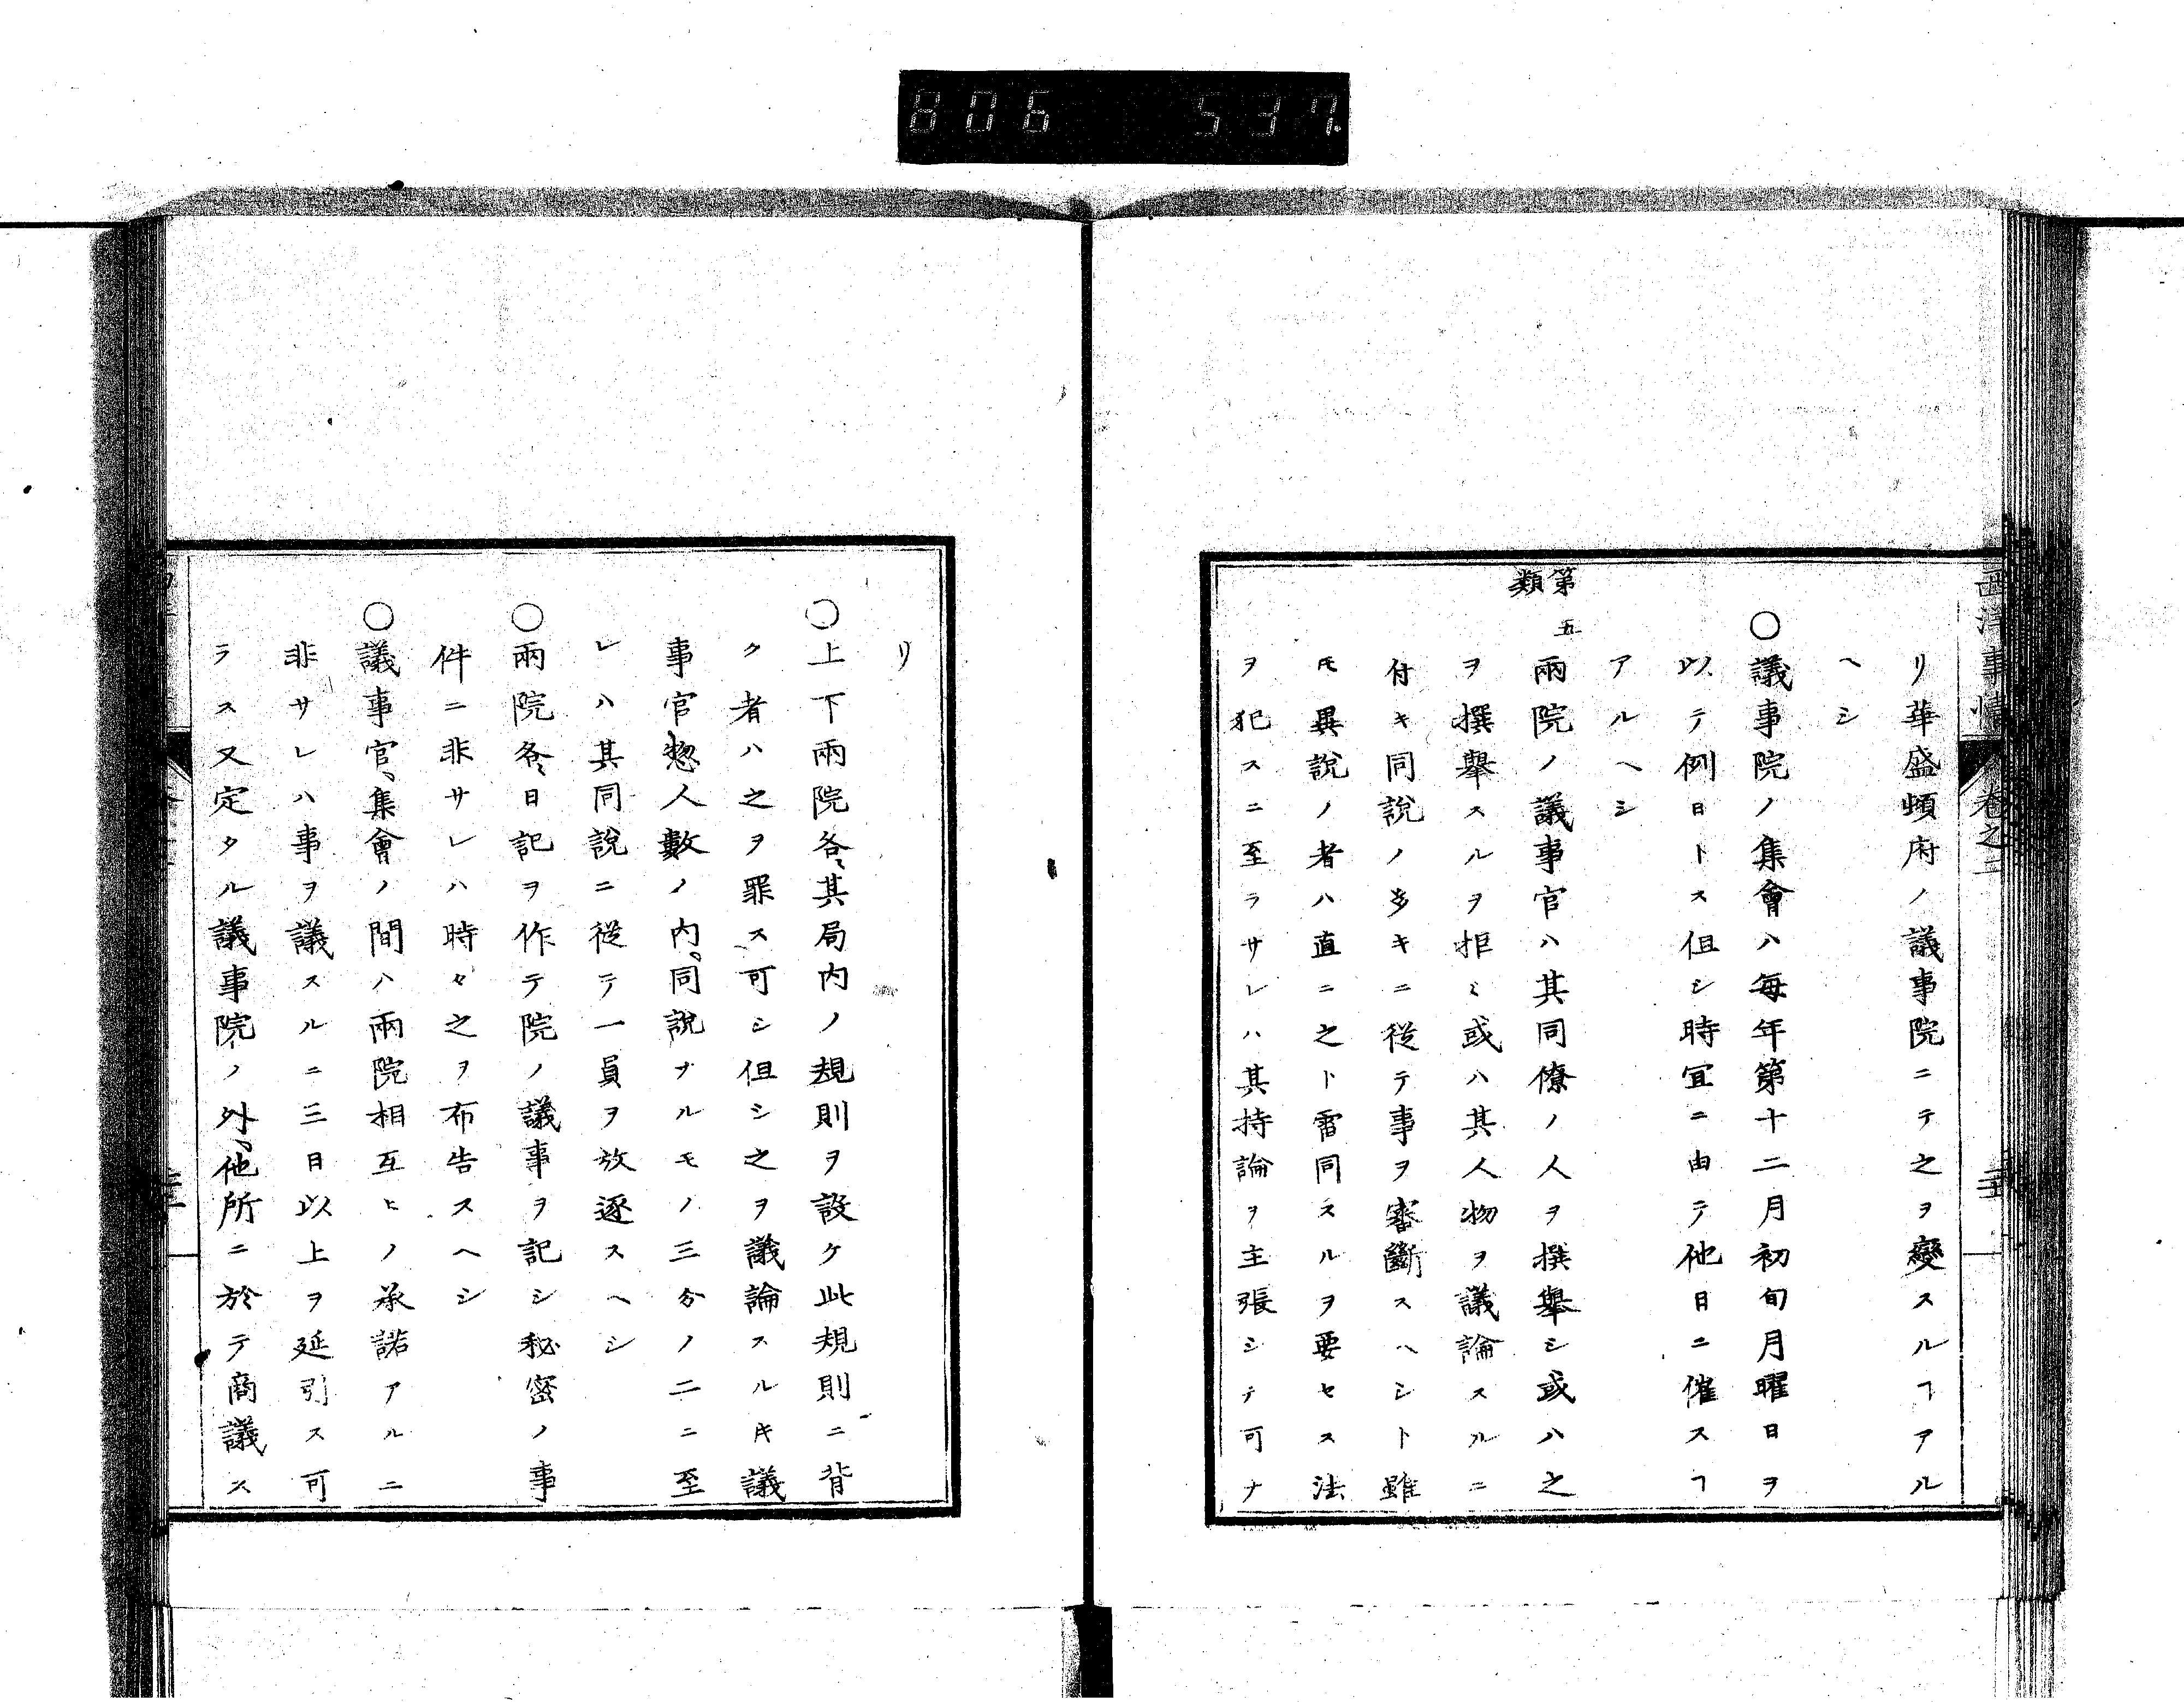 806 537.
西洋事情 卷之二
リ華盛頓府ノ議事院ニテ之ヲ變スルヿアル
ヘシ
〇議事院ノ集會ハ每年第十二月初旬月曜日ヲ
以テ例日トス但シ時宜ニ由テ他日ニ催スヿ
アルヘシ
第五類
兩院ノ議事官ハ其同僚ノ人ヲ撰擧シ或ハ之
ヲ撰擧スルヲ拒ミ或ハ其人物ヲ議論スルニ
付キ同說ノ多キニ從テ事ヲ審斷スヘシト雖
𪜈異說ノ者ハ直ニ之ト雷同スルヲ要セス法
ヲ犯スニ至ラサレハ其持論ヲ主張シテ可ナ
リ
〇上下兩院各〻其局內ノ規則ヲ設ケ此規則ニ背
ク者ハ之ヲ罪ス可シ但シ之ヲ議論スル𪜈議
事官惣人數ノ內、同說ナルモノ三分ノ二ニ至
レハ其同說ニ從テ一員ヲ放逐スヘシ
〇兩院各〻日記ヲ作テ院ノ議事ヲ記シ秘密ノ事
件ニ非サレハ時々之ヲ布告スヘシ
〇議事官、集會ノ間ハ兩院相互ヒノ承諾アルニ
非サレハ事ヲ議スルニ三日以上ヲ延引ス可
ラス又定タル議事院ノ外、他所ニ於テ商議ス